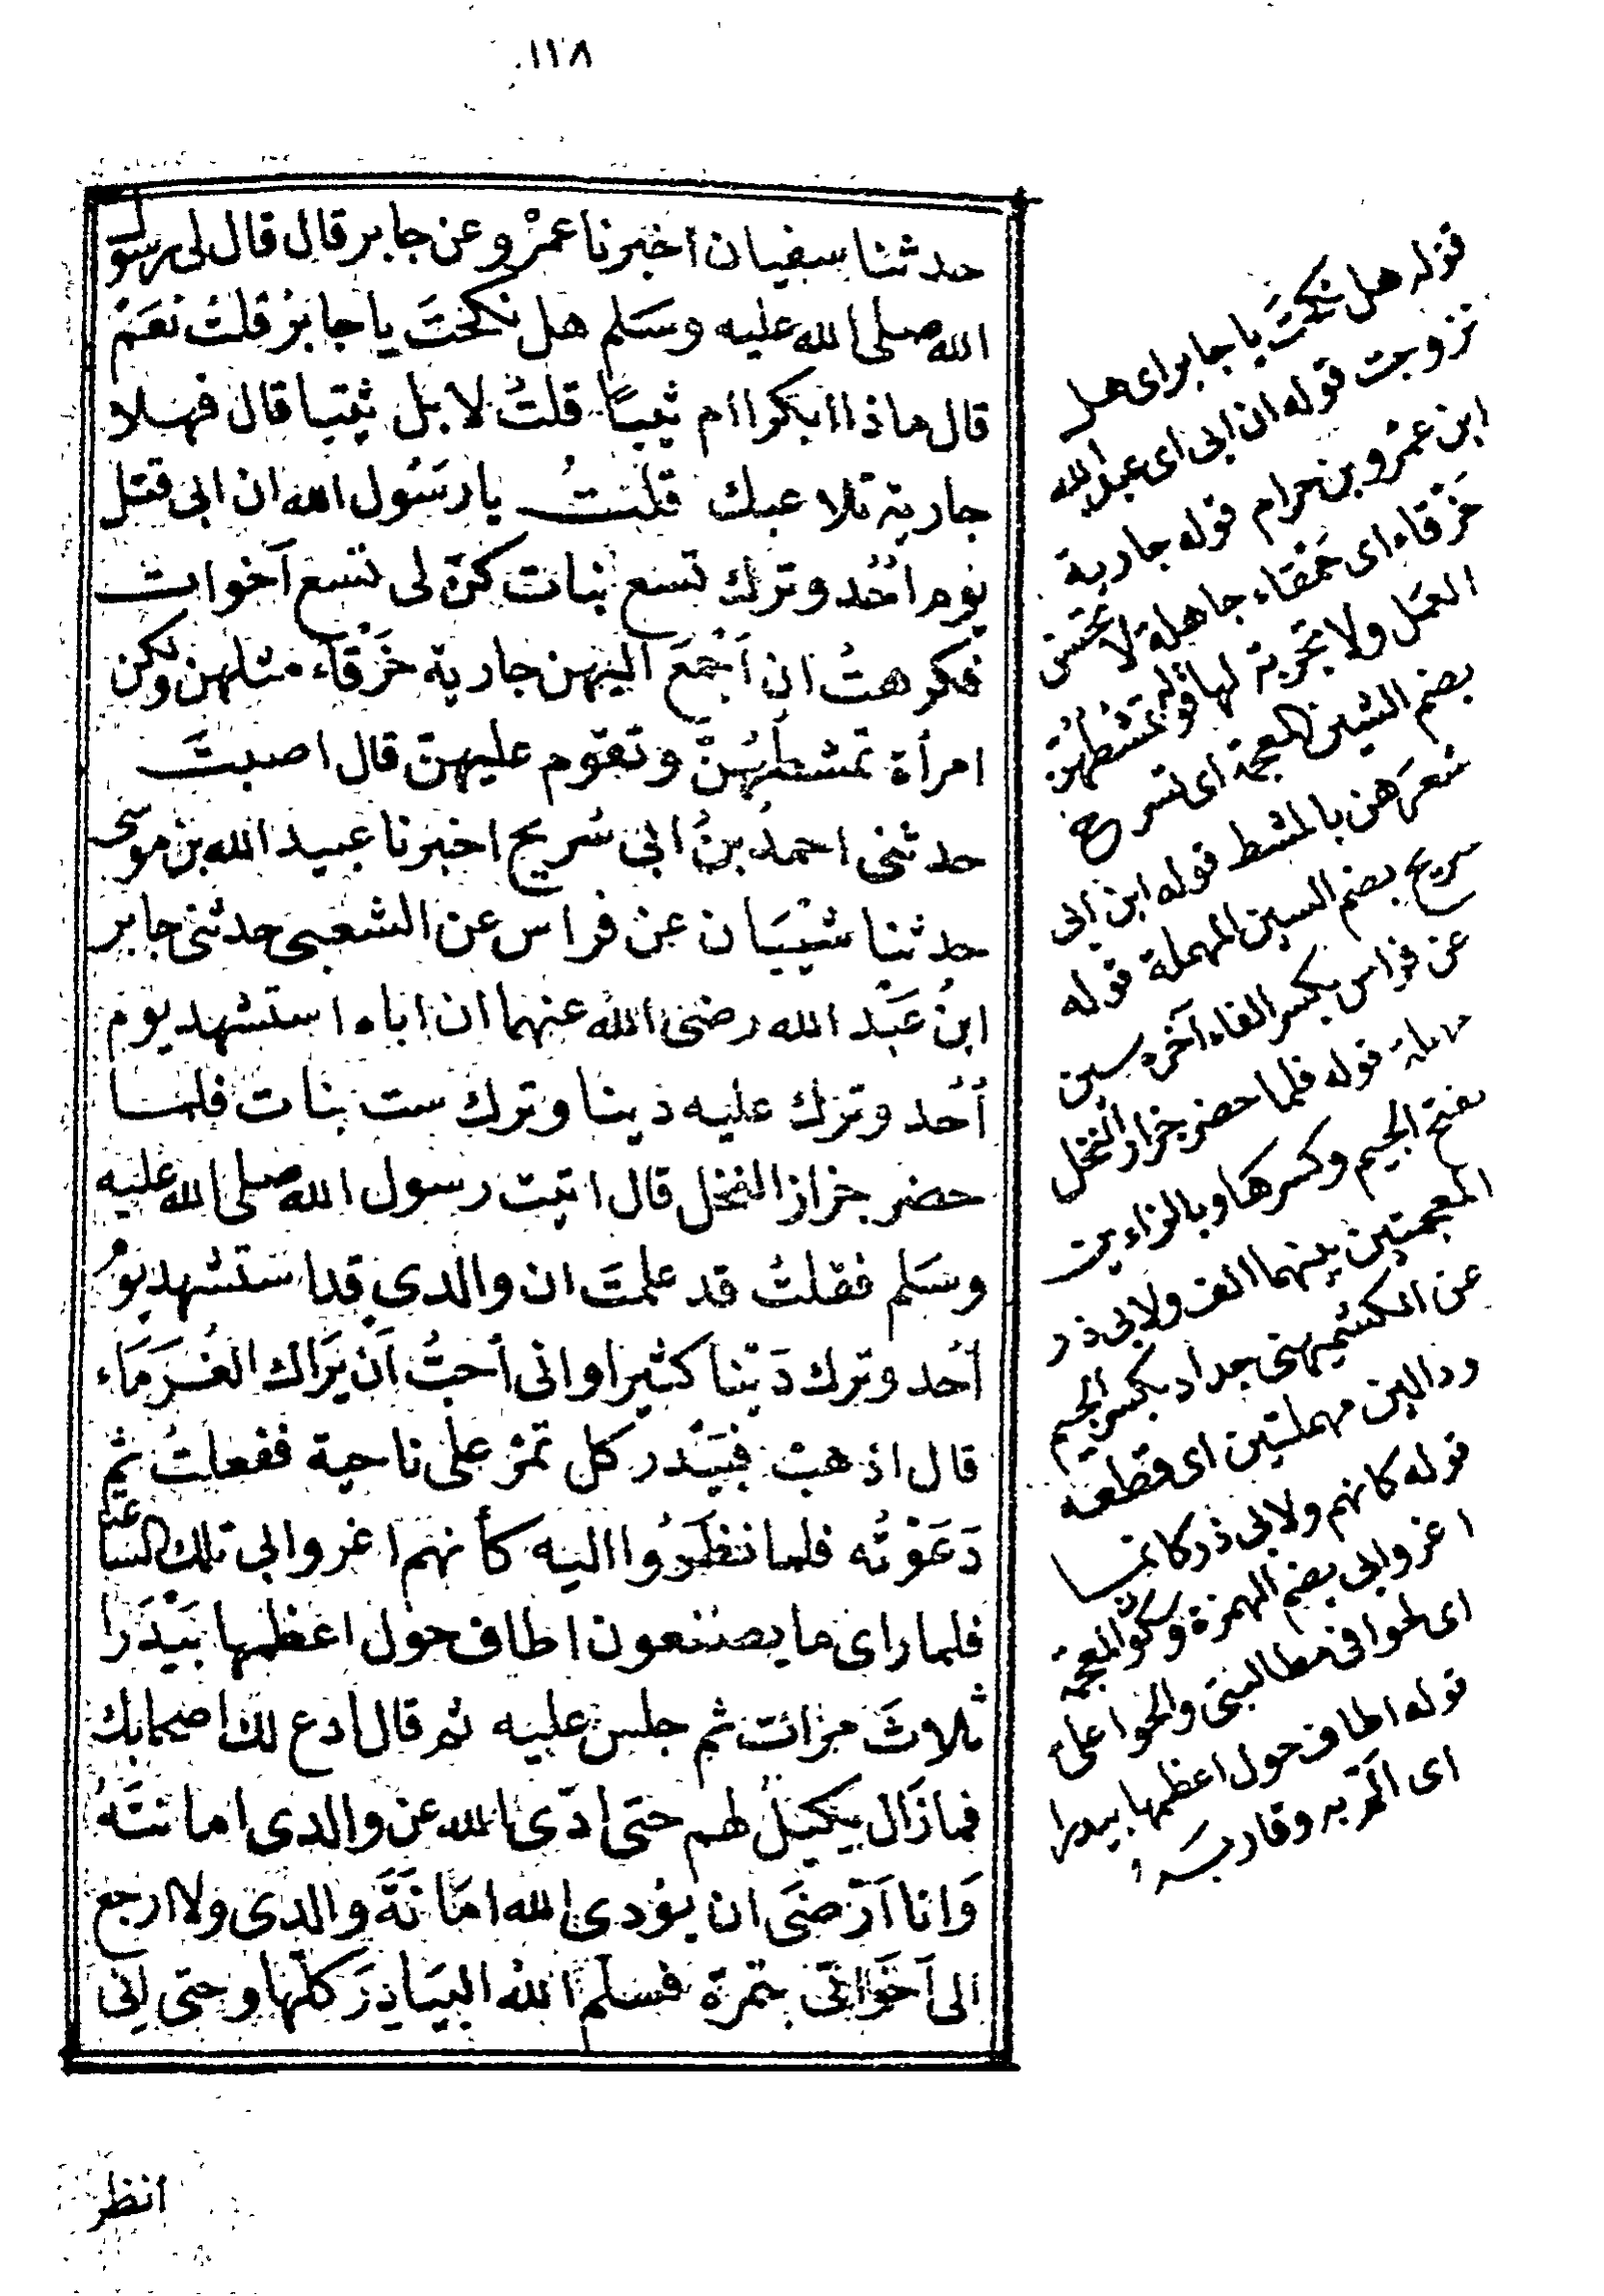 ١١٨
حدثنا سفيان اخبرنا عمرْو عن جابر قال قال لى رسول
الله صلى الله عليه وسَلم هل نكحتَ يا جابرُ قلتُ نعَمْ
قال ماذا ابكرا ام ثيبًا قلتُ لا بل ثيبا قال فهلا
جارية تلاعبك قلتُ يا رسُول الله ان ابى قتل
يوم احُد وترك تسع بنات كنّ لى تسع اَخوات
فكرهتُ ان اَجْمعَ اليهن جارية خَرْقاَء مثلهن ولكن
امرأة تمشطهُنّ وتقوم عليهنّ قال اصبتَ
حدثنى احمدُ بنُ ابى سُريج اخبرنا عبيد الله بن موسى
حدثنا شيْبَان عن فراس عن الشعبى حدثنى جابر
ابنُ عَبْد الله رضى الله عنهما ان اباه استشهد يوم
اُحُد وترك عليه دينا وترك ست بنات فلما
حضر جزاز النخل قال اتيت رسول الله صلى الله عليه
وسَلم فقلتُ قد علمتَ ان والدى قد استشهد يومَ
اُحُد وترك دَيْنا كثيرا وانى اُحبُّ اَن يَراك الغُرَمَاء
قال اذهبْ فبَيْدر كل تمْر على ناحية ففعلتُ ثم
دَعَوْتُه فلما نظَرُوا اليه كأنهم اغروا بى تلك الساعة
فلما راى ما يصنعون اطاف حول اعظمها بَيْدَرا
ثلاثَ مرّات ثم جلس عليه ثم قال ادع لك اصحابك
فمازَال يكيلُ لهم حتى ادّى الله عن والدى امانتَهُ
وَانا اَرْضَى ان يؤدى الله امَانَةَ والدى ولا ارجع
الى اَخَوَاتى بتمرة فسلم الله البيَادِرَ كلّها وحتى اِنى
قوله هل نكحتَ يا جابر اى هل
تزوجت قوله ان ابى اى عبد الله
ابن عمرْو بن حرام قوله جارية
خَرْقاء اى حَمْقاء جاهلة لا تحسن
العمَل ولا تجربة لها قوله تمشُطهنّ
بضم الشين المعجمة اى تسرح
شعرَهن بالمشط قوله ابن ابى
سريج بضم السين المهملة قوله
عن فراس بكسر الفاء آخره سين
مهملة قوله فلما حضر جزاز النخل
بفتح الجيم وكسرها وبالزاءين
المعجمتين بينهما الف ولابى ذر
عن الكشميهنى جداد بكسر الجيم
ودالين مهملتين اى قطعه
قوله كانهم ولابى ذر كانما
اغروا بى بضم الهمزة وسكون المعجمة
اى لحوا فى مطالبتى والحوا على
قوله اطاف حول اعظمها بيدرا
اى الم به وقاربه
انظر